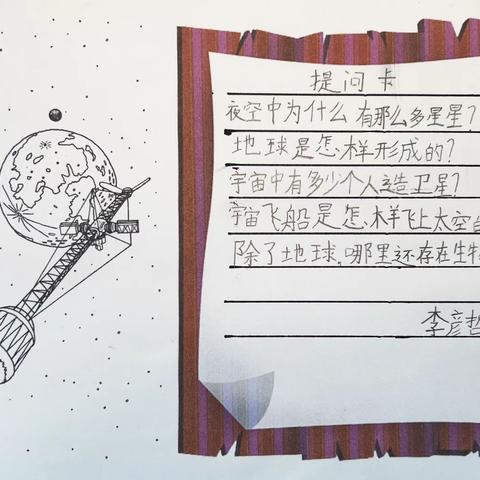 提问卡
夜空中为什么有那么多星星?
地球是怎样形成的?
宇宙中有多少个人造卫星?
宇宙飞船是怎样飞上太空
除了地球,哪里还存在生物
李彦哲